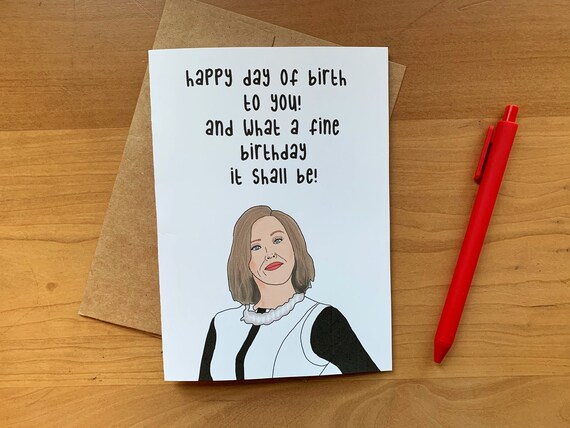 happy day of birth
to you!
and what a fine
birthday
it shall be!